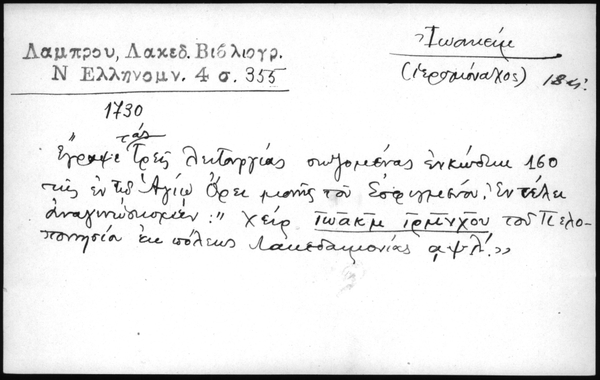 Λαμπρου, Λακεδ. Βιβλιογρ.
Ν Ελληνομν. 4 σ. 355
Ἰωακείμ
(ἱερομόναχος) 18 αἰ.
1730
τάς
"Εγραψε Τρεῖς λειτουργίας σωζομένας ἐν κώδικι 160
τῆς ἐν τῷ Ἁγίῳ Ὄρει μονῆς τοῦ Ἐσφιγμένου. Ἐν τέλει
ἀναγινώσκομεν: "Χείρ Ἰωακμ ἱρμνχου τοῦ Πελο-
ποννησίου ἐκ πόλεως Λακεδαιμονίας αψλ'."